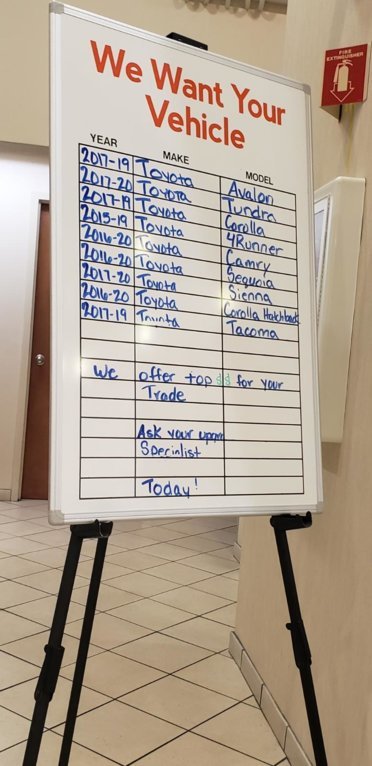 We Want Your
Vehicle
YEAR MAKE MODEL
2017-19 Toyota Avalon
2017-20 Toyota Tundra
2017-19 Toyota Corolla
2015-19 Toyota 4Runner
2016-20 Toyota Camry
2016-20 Toyota Sequoia
2017-20 Toyota Sienna
2016-20 Toyota Corolla Hatchback
2017-19 Toyota Tacoma
We offer top $$ for your
Trade
Ask your
Specialist
Today!
FIRE
EXTINGUISHER